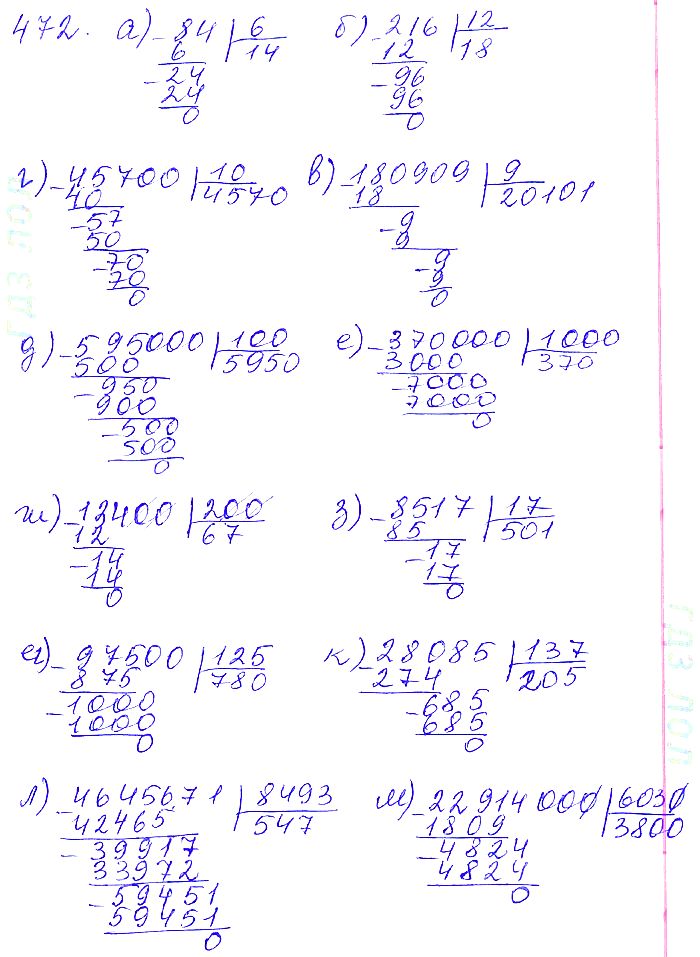 472. а) -84 |6
6 14
-24
24
0
б) -216 |12
12 18
-96
96
0
г) -45700 |10
40 4570
-57
50
-70
70
0
в) -180909 |9
18 20101
-9
9
-9
9
0
д) -595000 |100
500 5950
-950
900
-500
500
0
е) -370000 |1000
3000 370
-7000
7000
0
ж) -13400 |200
12 67
-14
14
0
з) -8517 |17
85 501
-17
17
0
и) -97500 |125
875 780
-1000
1000
0
к) -28085 |137
274 205
-685
685
0
л) -4645671 |8493
42465 547
-39917
33972
-59451
59451
0
м) -22914000 |6030
1809 3800
-4824
4824
0